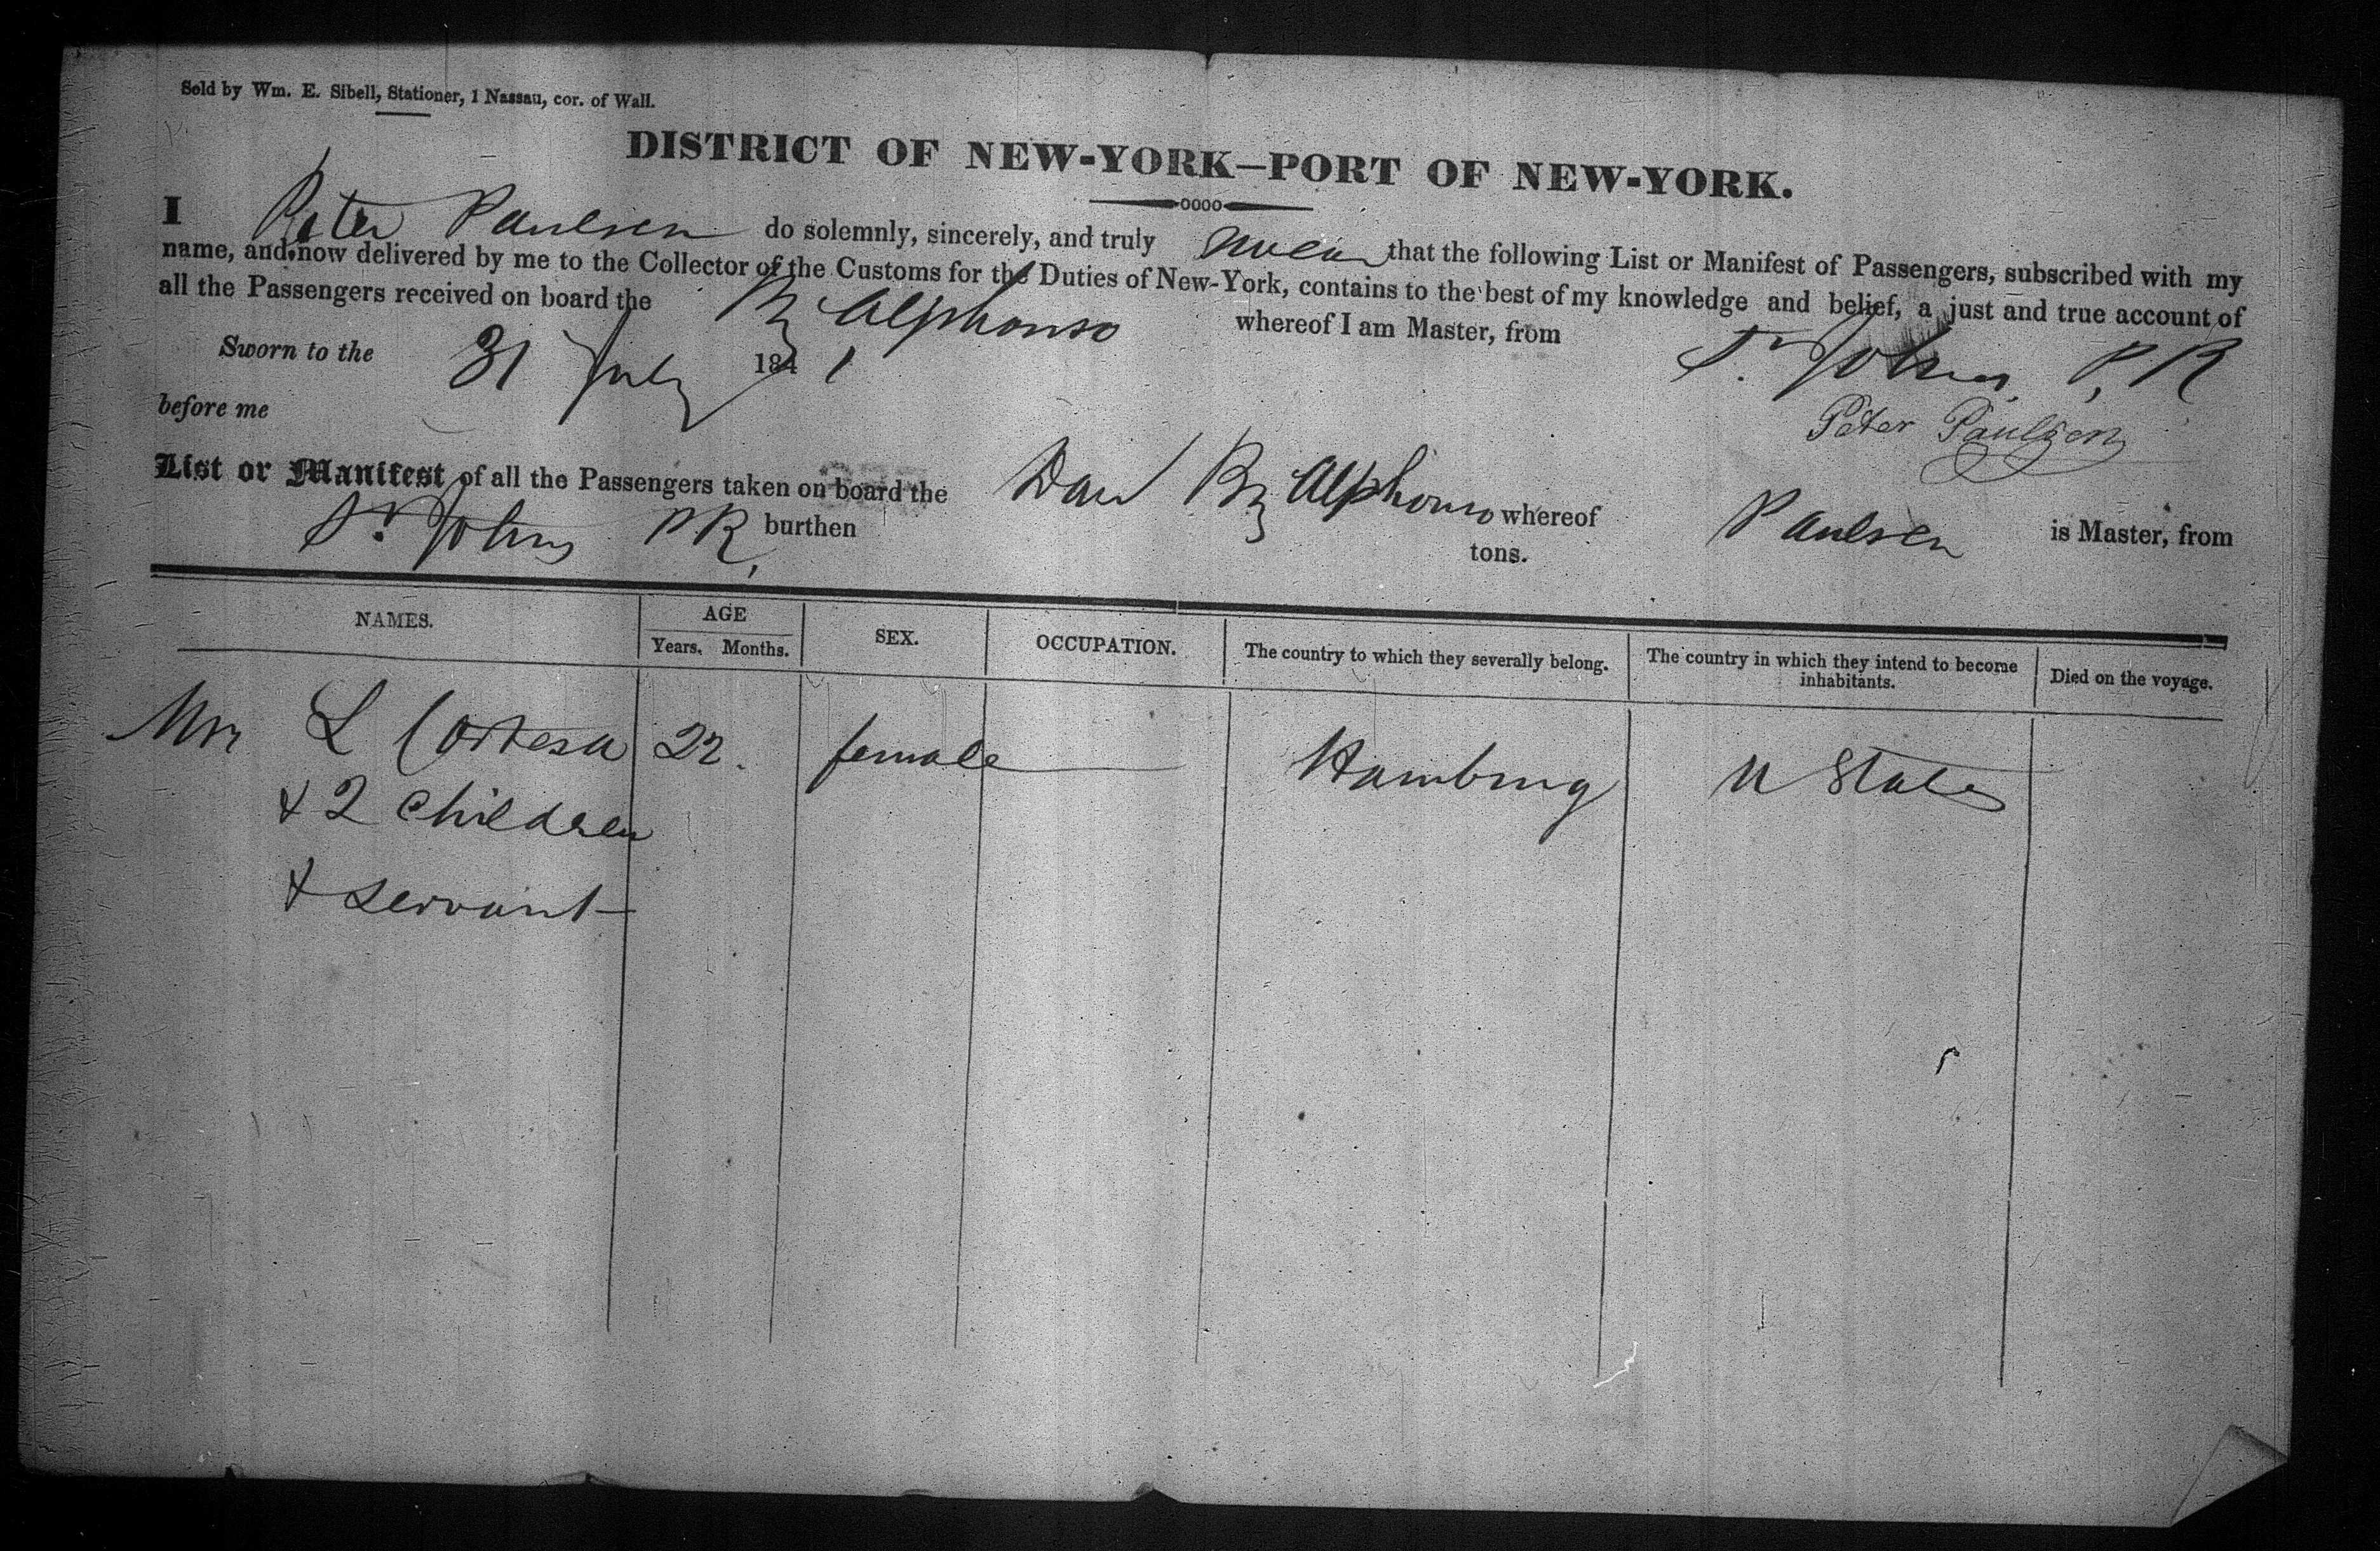 Sold by Wm. E. Sibell, Stationer, 1 Nassau, cor. of Wall.
DISTRICT OF NEW-YORK—PORT OF NEW-YORK.
I Peter Paulsen do solemnly, sincerely, and truly swear that the following List or Manifest of Passengers, subscribed with my
name, and now delivered by me to the Collector of the Customs for the Duties of New-York, contains to the best of my knowledge and belief, a just and true account of
all the Passengers received on board the Bg Alphonso whereof I am Master, from St Johns, P, R
Sworn to the 31 July 1841
before me
Peter Paulsen
List or Manifest of all the Passengers taken on board the Dan Bg Alphonso whereof Paulsen is Master, from
St Johns PR, burthen tons.
NAMES. AGE SEX. OCCUPATION. The country to which they severally belong. The country in which they intend to become inhabitants. Died on the voyage.
Years. Months.
Mrs L 22. female Hamburg U States
+ 2 children
+ servant